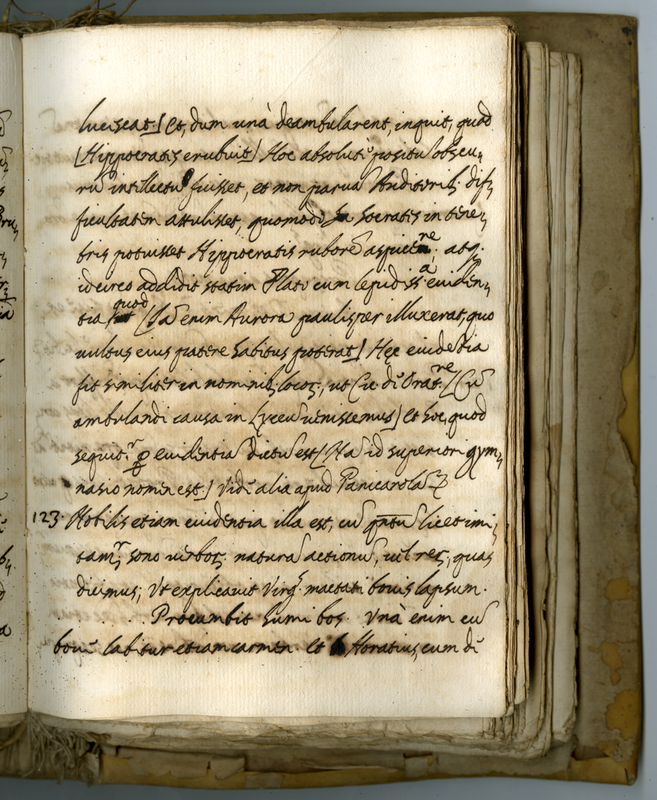 luciscat] Et, dum unà deambularent, inquit, quod
[Hippocratis erubuit] Hoc absolutè positũ obscu,
rũ intellectu fuisset, et non parvã Auditorib; dif,
ficultatem attulisset, quomodo Socratis in tene,
bris potuisset Hippocratis ruborẽ aspicere. atq.
idcirco addidit statim Plato cum lepidissa eviden,
tia quod [Iã enim Aurora paulisper illuxerat, quo
vultus eius patere habitus poterat] Hęc evidẽtia
fit similiter in nominib; locoꝝ, ut Cic. de Oratre. [Cũ
ambulandi causa in Lyceũ venissemus] et hoc, quod
sequitr. ꝓ evidentia dictũ est [Nã id superiori gym,
nasio nomen est.] Vide alia apud Panicarolã
123. Nobilis etiam evidentia illa est, cũ qñtũ licet imi,
tamr sono verboꝝ naturã actionũ, vel reꝝ, quas
dicimus; Ut explicavit Virg. mactati bovis lapsum.
Procumbit humi bos Unà enim cũ
bove labitur etiam carmen. Et Horatius, cum de